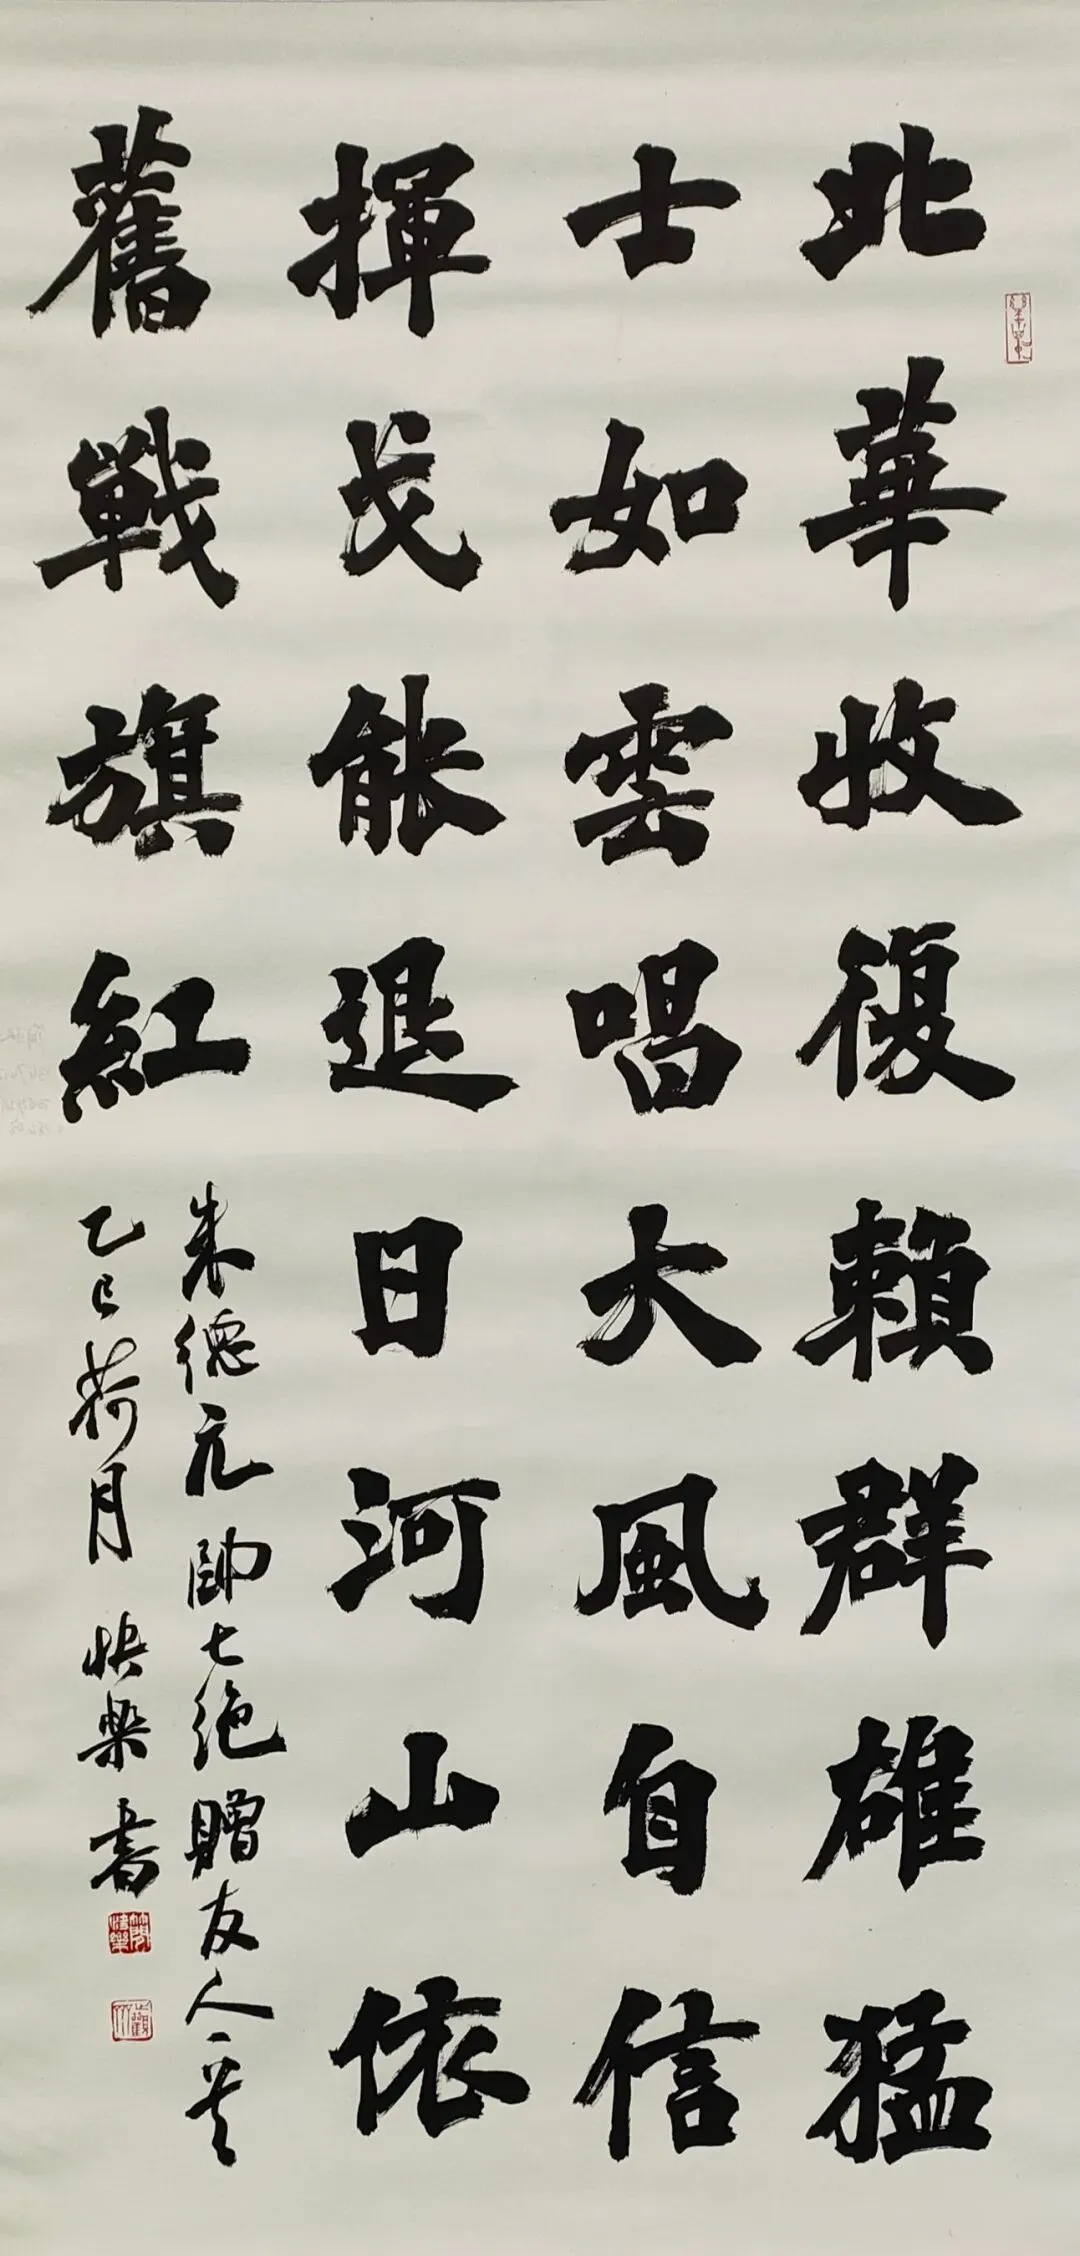 北華收復賴群雄猛
士如雲唱大風自信
揮戈能退日河山依
舊戰旗紅
朱德元帥七绝贈友人一首
乙巳荷月 快樂書